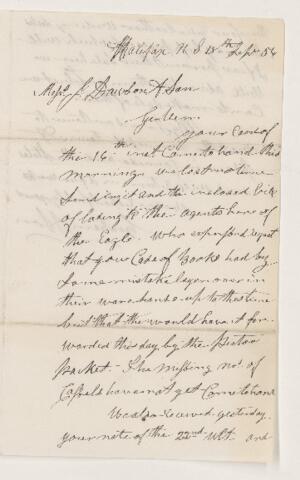 Halifax N. S 18th Sepr 54
Messrs J. Dawson & Son
Gentlem.
your Case of
the 16th inst Came to hand this
morning we lost no time
Sending it and the inclosed
of lading to the agents here of
the Eagle. Who expressed regret
that your Case of Books had by
Some mistake layen over in
their ware house up to this time
but that the would have it for-
warded this day by the Pictou
packet. The missing nos. of
have not yet Come to hand
We also received yesterday
your note of the 22nd ult. and